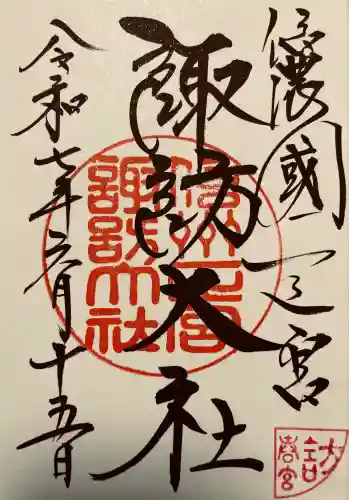 信濃國一之宮
諏訪大社
令和七年六月十五日
信州一之宮
諏訪大社
春宮